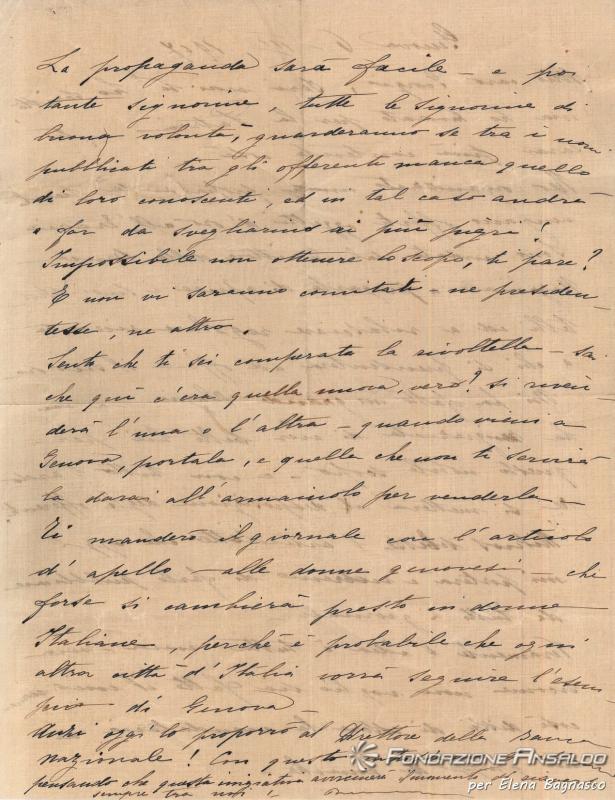 La propaganda sarà facile – e poi
tante signorine, tutte le signorine di
buona volontà, guarderanno se tra i nomi
pubblicati tra gli offerenti manca quello
di loro conoscente, ed in tal caso andrà
a far da svegliarino ai più pigri!
Impossibile non ottenere lo scopo, ti pare?
E non vi saranno comitati – nè presiden-
tesse, ne altro.
Sento che ti sei comperata la rivoltella – sai
che qui c'era quella nuova, vero? si riven
derà l'una o l'altra – quando vieni a
Genova, portala, e quella che non ti servirà
la darai all'armaiuolo per venderla –
Ti manderò il giornale con l'articolo
d'apello – alle donne genovesi – che
forse si cambierà presto in donne
Italiane, perchè è probabile che ogni
altra città d'Italia vorrà seguire l'esem
pio di Genova –
Anzi oggi lo proporrò al Direttore della Banca
nazionale! Con questo
pensando che questa iniziativa avvicinerà
sempre tra noi!
Fondazione Ansaldo
per Elena Bagnasco